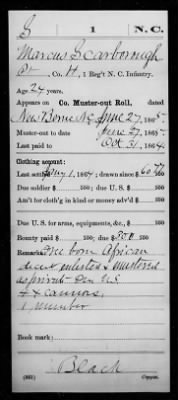 S | 1 | N.C.
Marcus Scarborough
Pt, Co. H, 1 Reg't N. C. Infantry.
Age 24 years.
Appears on Co. Muster-out Roll, dated
New Berne N.C. June 27, 1865.
Muster-out to date June 27, 1865.
Last paid to Oct 31, 1864.
Clothing account:
Last settled Jany 1, 1864; drawn since $ 60 77/100
Due soldier $ 100; due U. S. $ 100
Am't for cloth'g in kind or money adv'd $ 100
Due U. S. for arms, equipments, &c., $ 100
Bounty paid $ 100; due $ 300 100
Remarks: Free born African
decent enlisted & mustered
as private
number
Book mark:
Black
(861) Copyist.